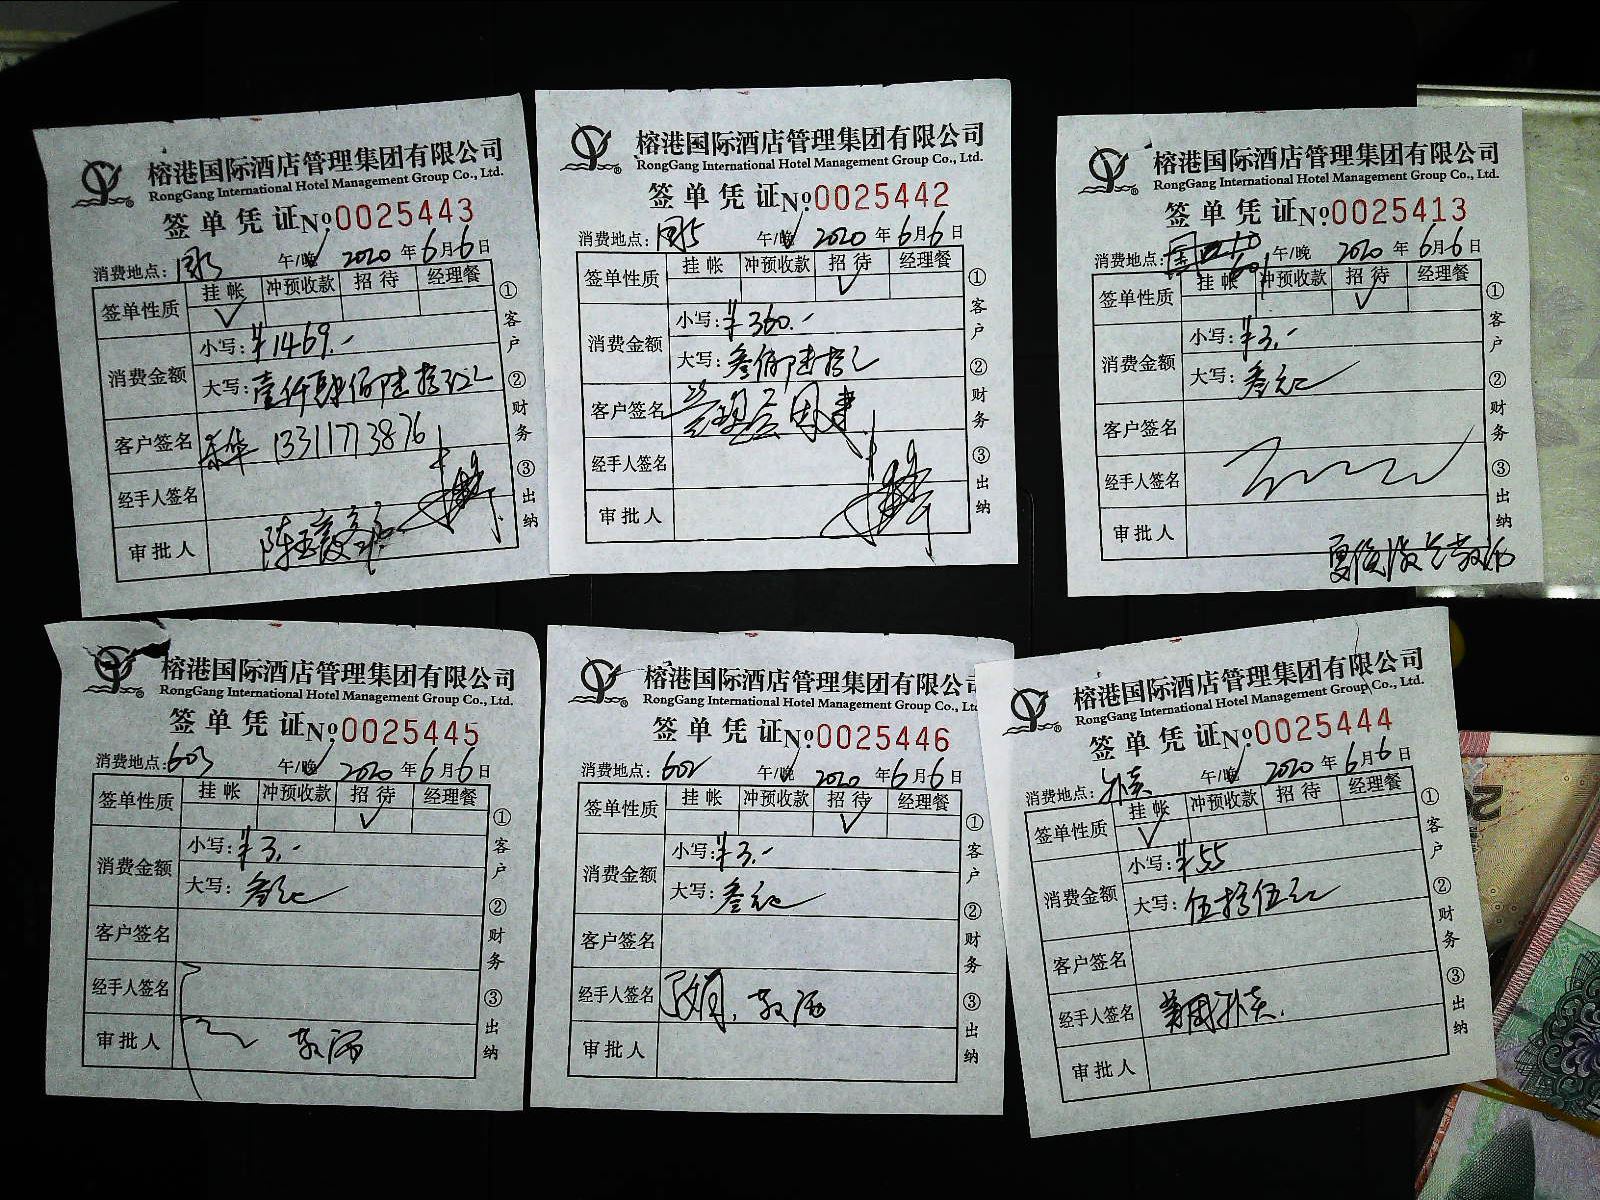 榕港国际酒店管理集团有限公司
RongGang International Hotel Management Group Co., Ltd.
签单凭证 No.0025443
消费地点: 午/晚 2020年6月6日
签单性质 挂帐 冲预收款 招待 经理餐
消费金额
小写:¥1469.-
大写:壹仟肆佰陆拾玖元
客户签名 13311773876
经手人签名
审批人
①客户 ②财务 ③出纳
榕港国际酒店管理集团有限公司
RongGang International Hotel Management Group Co., Ltd.
签单凭证 No.0025442
消费地点: 午/晚 2020年6月6日
签单性质 挂帐 冲预收款 招待 经理餐
消费金额
小写:¥360.-
大写:叁佰陆拾元
客户签名
经手人签名
审批人
①客户 ②财务 ③出纳
榕港国际酒店管理集团有限公司
RongGang International Hotel Management Group Co., Ltd.
签单凭证 No.0025413
消费地点: 601 午/晚 2020年6月6日
签单性质 挂帐 冲预收款 招待 经理餐
消费金额
小写:¥3.-
大写:叁元
客户签名
经手人签名
审批人
①客户 ②财务 ③出纳
榕港国际酒店管理集团有限公司
RongGang International Hotel Management Group Co., Ltd.
签单凭证 No.0025445
消费地点:603 午/晚 2020年6月6日
签单性质 挂帐 冲预收款 招待 经理餐
消费金额
小写:¥3.-
大写:叁元
客户签名
经手人签名
审批人
①客户 ②财务 ③出纳
榕港国际酒店管理集团有限公司
RongGang International Hotel Management Group Co., Ltd.
签单凭证 No.0025446
消费地点:602 午/晚 2020年6月6日
签单性质 挂帐 冲预收款 招待 经理餐
消费金额
小写:¥3.-
大写:叁元
客户签名
经手人签名
审批人
①客户 ②财务 ③出纳
榕港国际酒店管理集团有限公司
RongGang International Hotel Management Group Co., Ltd.
签单凭证 No.0025444
消费地点: 午/晚 2020年6月6日
签单性质 挂帐 冲预收款 招待 经理餐
消费金额
小写:¥55
大写:伍拾伍元
客户签名
经手人签名
审批人
①客户 ②财务 ③出纳